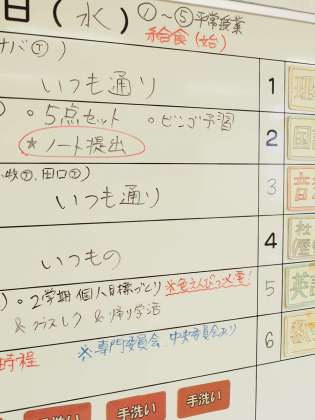 日(水) ①〜⑤平常授業
給食(始)
ナバ①)
いつも通り 1
○5点セット ○ビンゴ予習 2 国
★ノート提出
田口②)
いつも通り 3 音
いつもの 4 社(歴
○2学期 個人目標づくり ※色えんぴつ必要! 5 英語
& クラスレク & 帰り学活
※専門委員会 中央委員会あり 6
時程
手洗い 手洗い 手洗い